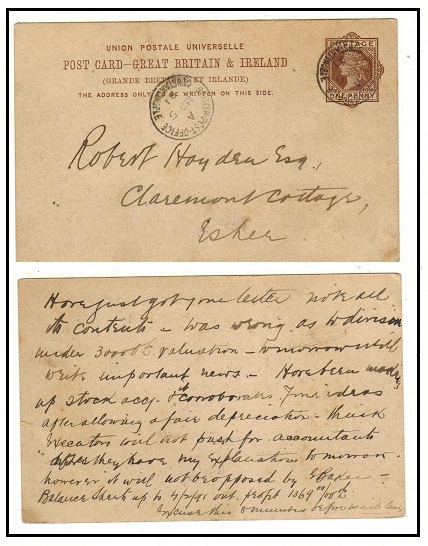 UNION POSTALE UNIVERSELLE
POST CARD–GREAT BRITAIN & IRELAND
(GRANDE BRETAGNE ET IRLANDE)
THE ADDRESS ONLY WRITTEN ON THIS SIDE.
POSTAGE
ONE PENNY
BRITISH POST-OFFICE CONSTANTINOPLE
A
Robert Hayden Esq.,
Claremont Cottage,
Esher
Have just got your letter note all
its contents – was wrong as to division
under valuation – tomorrow will
write important news – Have been
up stock accy. & corroborates your ideas
after allowing a fair depreciation – think
executors will not push for accountants
they have my explanations tomorrow
however it will not be opposed by
Balance Sheets up to out. profit 1369
Excuse this minutes before